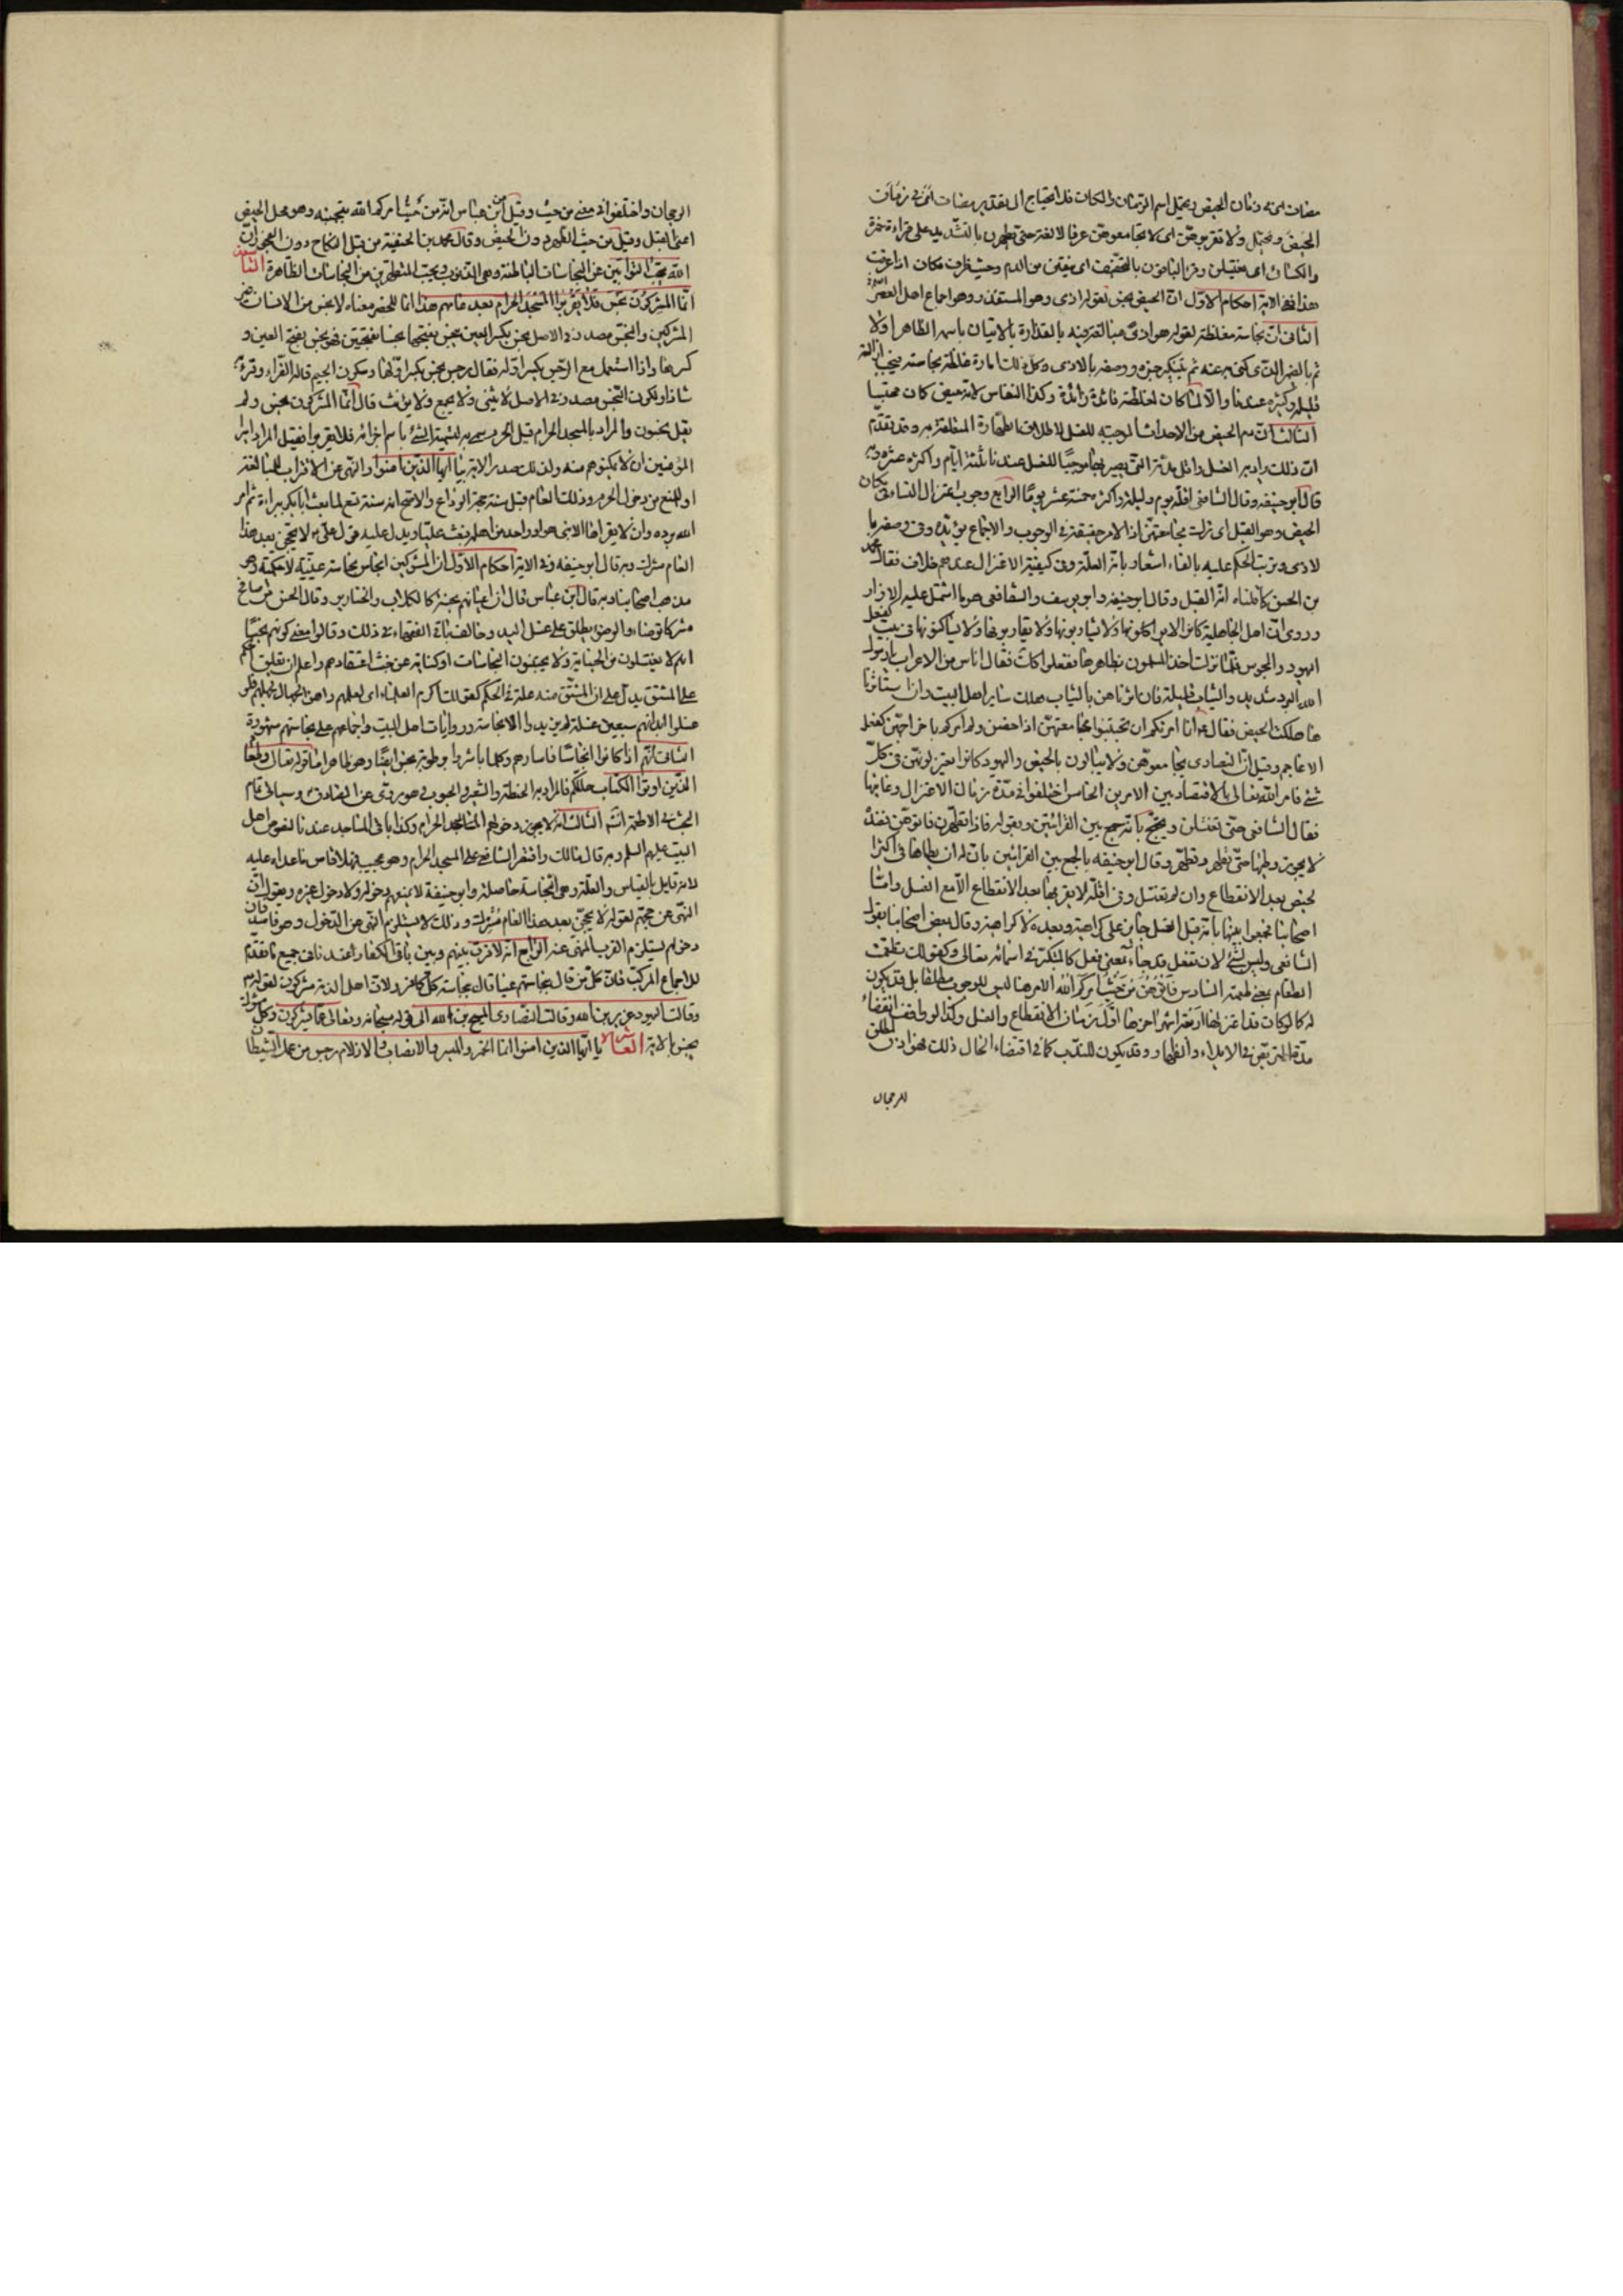 مضاف اى مدة زمان الحيض ويحتمل اسم الزمان والمكان فلا احتياج الى تقدير مضاف اى فى زمان
الحيض ومحتمل ولا تقربوهن اى لا تجامعوهن عرفا لا لغة حتى يطهرن بالتشديد على قراءة حمزة
والكسائى اى يغتسلن وقرأ الباقون بالتخفيف اى ينقين من الدم وحيث ظرف مكان اذا عرفت
هذا ففى الاية احكام الاول ان الحيض نجس لقوله اذى وهو المستقذر وهو اجماع اهل العصر
الثانى ان نجاسته مغلظة لقوله هو اذى مبالغة فيه بالقذارة بالاتيان باسمه الظاهر اولا
ثم بالضمير الذى كنى به عنه ثم بتنكير خبره ووصفه بالاذى وكل ذلك امارة غلظة نجاسته فيجب ازالة
قليله وكثيره عندنا والا لما كان لغلظته فائدة زائدة وكذا النفاس لانه حيض كان محتبسا
الثالث ان دم الحيض من الاحداث الموجبة للغسل لاطلاق الطهارة المتعلقة به وقد تقدم
ان ذلك يراد به الغسل واقل مدته التى يصير بها موجبا للغسل عندنا ثلثة ايام واكثره عشرة وبه
قال ابو حنيفه وقال الشافعى اقله يوم وليلة واكثره خمسة عشر يوما الرابع وجوب اعتزال النساء فى مكان
الحيض وهو القبل اى ترك مجامعتهن اذ الامر حقيقة فى الوجوب والاجماع يؤيده وفى وصفه با
لاذى وترتب الحكم عليه بالفاء اشعار بانه العلة وفى كيفية الاعتزال عندهم خلاف فقال محمد
بن الحسن كما قلناه انه القبل وقال ابو حنيفه وابو يوسف والشافعى هو ما اشتمل عليه الازار
وروى ان اهل الجاهلية كانوا لا يواكلونها ولا يشاربونها ولا يساكنونها فى بيت كفعل
اليهود والمجوس فلما نزلت اخذ المسلمون بظاهرها ففعلوا كذلك فقال اناس من الاعراب يا رسول
الله البرد شديد والثياب قليلة فان اثرناهن بالثياب هلك سائر اهل البيت وان استأثرنا
بها هلكت الحيض فقال ع انما امرتكم ان تجتنبوا مجامعتهن اذا حضن ولم امركم باخراجهن كفعل
الاعاجم وقيل ان النصارى يجامعوهن ولا يبالون بالحيض واليهود كانوا يعتزلونهن فى كل
شئ فامر الله تعالى بالاقتصاد بين الامرين الخامس اختلفوا فى مدة زمان الاعتزال وغايتها
فقال الشافعى حتى تغتسلن ويحتج بانه جمع بين القرائتين وبقوله فاذا تطهرن فاتوهن فعنده
لا يجوز وطيها حتى تطهر وتطهر وقال ابو حنيفه بالجمع بين القرائتين بان له ان يطأها فى اكثر ا
لحيض بعد الانقطاع وان لم تغتسل وفى اقله لا يقربها بعد الانقطاع الا مع الغسل واما
اصحابنا فجمعوا بينهما بانه قبل الغسل جايز على كراهية وبعده لا كراهية وقال بعض اصحابنا بقول
الشافعى وليس بشئ لان تفعل قد جاء بمعنى فعل كالمتكبر فى اسمائه تعالى وكقولك تطعمت
الطعام بمعنى طعمته السادس فاتوهن من حيث امركم الله الامر هنا ليس للوجوب مطلقا بل قد يكون
له كما لو كان قد اعتزلها اربعة اشهر اخرها اول زمان الانقطاع والغسل وكذا لو وافق انقضاء
مدة التربص فى الايلاء والظهار وقد يكون للندب كما فى اقتضاء الحال ذلك فهو اذن لمطلق
الرجحان
الرجحان واختلفوا فى معنى من حيث وقيل عن ابن عباس انه من حيث امركم الله بتجنبه وهو محل الحيض
اعنى القبل وقيل من حيث الطهر دون الحيض وقال محمد بن الحنفية من قبل النكاح دون الفجور ان
الله يحب التوابين عن النجاسات الباطنة وهى الذنوب ويحب المتطهرين من النجاسات الظاهرة التاسعة
انما المشركون نجس فلا يقربوا المسجد الحرام بعد عامهم هذا انما للحصر معناه لا نجس من الانسان غير
المشركين والنجس مصدر فى الاصل نجس بكسر العين ينجس بفتحها نجسا بفتحتين فهو نجس بفتح العين و
كسرها واذا استعمل مع الرجس بكسر اوله فقال رجس نجس بكسر اولهما وسكون الجيم قاله الفراء وقرئ
شاذا ولكون النجس مصدر فى الاصل لا يثنى ولا يجمع ولا يؤنث قال انما المشركون نجس ولم
يقل نجسون والمراد بالمسجد الحرام قيل الحرم سمى به لتسمية الشئ باسم اجزائه فلا يقربوا فقيل المراد امر
المؤمنين ان لا يمكنوهم منه ولذلك صدر الاية بيا ايها الذين امنوا والنهى عن الاقتراب للمبالغة
او للمنع من دخول الحرم وذلك العام قيل سنة حجة الوداع والاصح انه سنة تسع لما بعث ابا بكر ببراءة ثم امر
الله برده وان لا يقرأها الا نبى هو او واحد من اهله فبعث عليا ويدل عليه قول على ع لا يحجن بعد هذا
العام مشرك وبه قال ابو حنيفه وفى الاية احكام الاول ان المشركين انجاس نجاسة عينية لا حكمية وهو
مذهب اصحابنا وبه قال ابن عباس قال ان اعيانهم نجسة كالكلاب والخنازير وقال الحسن من صافح
مشركا توضاء والوضوء يطلق على غسل اليد وخالف باقى الفقهاء فى ذلك وقالوا معنى كونهم نجسا
انهم لا يغتسلون من الجنابة ولا يجتنبون النجاسات او كناية عن خبث اعتقادهم واعلم ان تعليق الحكم
على المشتق يدل على ان المشتق منه علة فى الحكم كقولك اكرم العلماء اى لعلمهم واهن الجهال لجهلهم فلو
غسلوا ابدانهم سبعين غسلة لم يزيدوا الا نجاسة وروايات اهل البيت واجماعهم على نجاستهم مشهورة
الثانى انهم اذا كانوا انجاسا فاسارهم وكلما باشروا برطوبة نجس ايضا وهو ظاهر اما قوله تعالى وطعام
الذين اوتوا الكتاب حل لكم فالمراد به الحنطة والشعير والحبوب فهو مروى عن الصادق ع وسيأتى تمام
البحث فى الاطعمة انشاء الله الثالث انه لا يجوز دخولهم المسجد الحرام وكذا باقى المساجد عندنا لنصوص اهل
البيت عليهم السلم وبه قال مالك واقتصر الشافعى على المسجد الحرام وهو عجيب فهلا قاس ما عداه عليه
لانه قايل بالقياس والعلة وهى النجاسة حاصلة وابو حنيفة لا يمنعهم دخوله ولا دخول غيره ويقول ان
النهى عن حجهم لقوله لا يحجن بعد هذا العام مشرك وذلك لا يستلزم النهى عن الدخول وهو فاسد فان
دخولهم يستلزم القرب المنهى عنه الرابع انه لا فرق بينهم وبين باقى الكفار عندنا فى جميع ما تقدم
للاجماع المركب فان كل من قال بنجاستهم عينا قال بنجاسة كل كافر ولان اهل الذمة مشركون لقوله
وقالت اليهود عزير بن الله وقالت النصارى المسيح بن الله الى قوله سبحانه وتعالى عما يشركون وكل مشرك
نجس بالاية العاشرة يا ايها الذين امنوا انما الخمر والميسر والانصاب والازلام رجس من عمل الشيطان